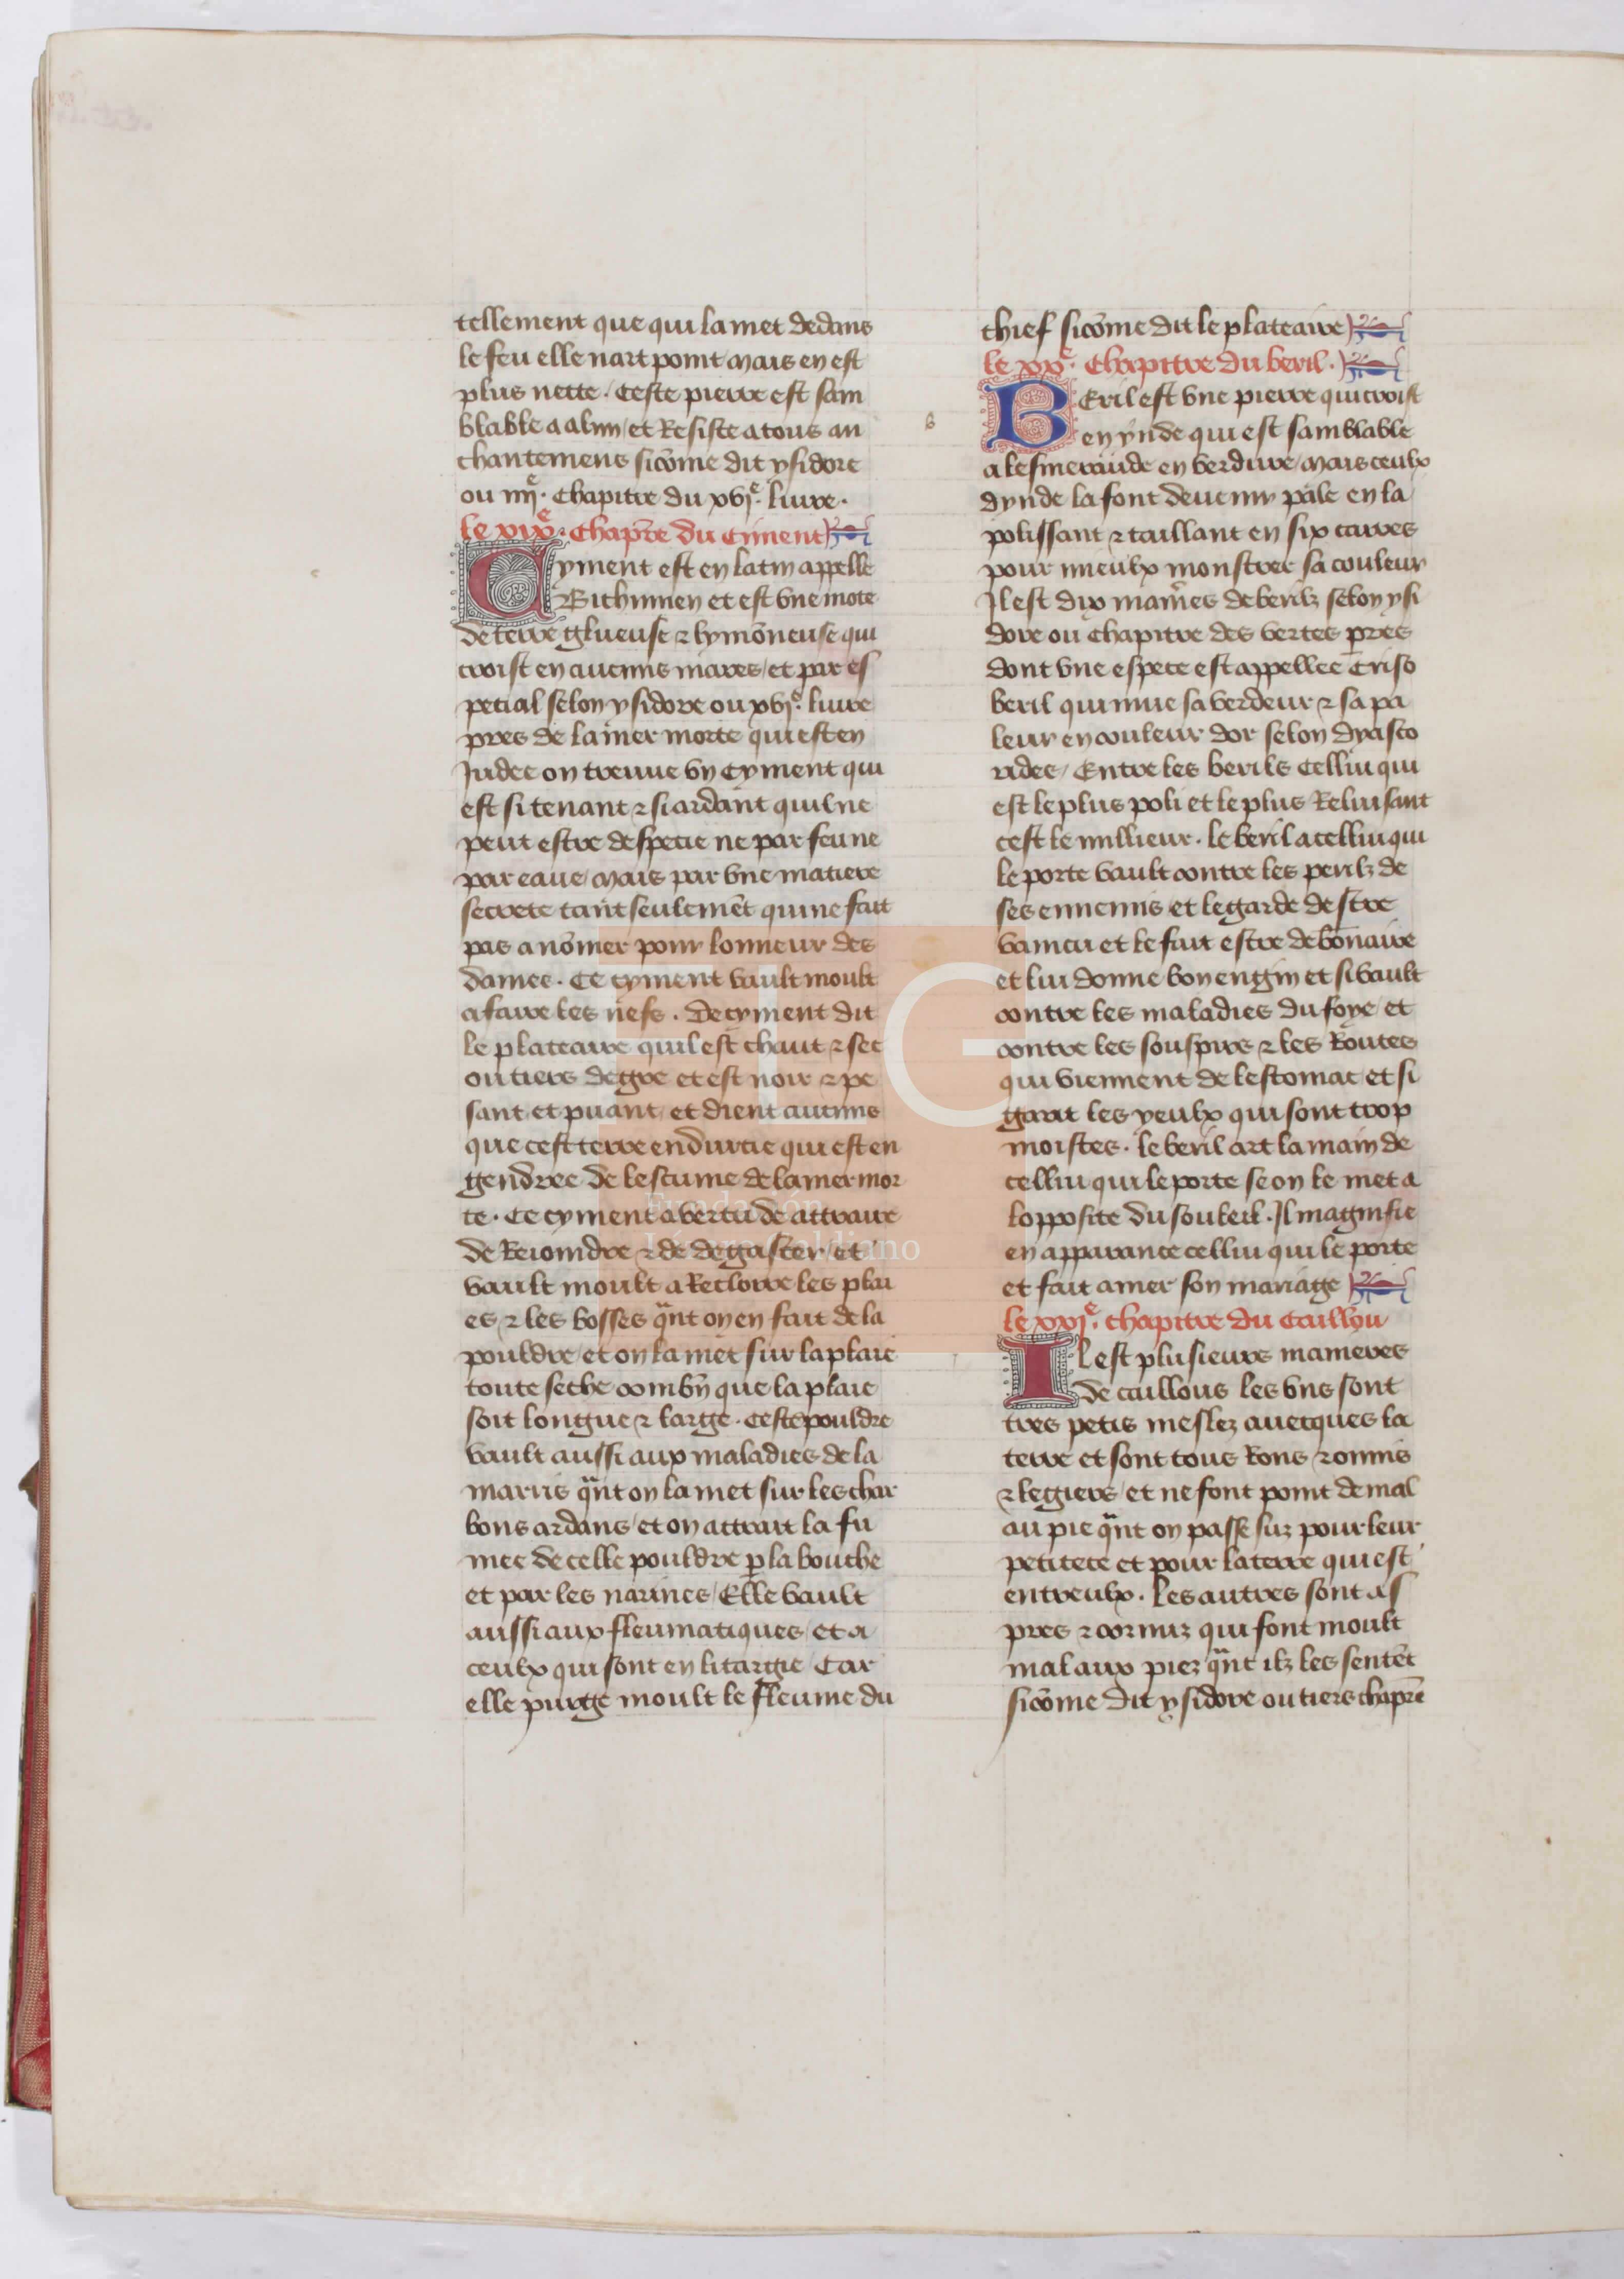 tellement que qui la met dedans
le feu elle nart point mais en est
plus nette. Ceste pierre est sam
blable a alun et Resiste a tous an
chantemens sicōme dit ysidore
ou iiijᵉ. chapitre du xvjᵉ. livre.
le xixᵉ. chapr̄e du Ciment
Cyment est en latin appelle
Bithumen et est vne mote
de terre glueuse ⁊ lymōneuse qui
croist en aucuns mares / et par es
pecial selon ysidore ou xvjᵉ. livre
pres de la mer morte qui est en
Judee on treuue vn cyment qui
est si tenant ⁊ si ardant quil ne
peut estre despecie ne par feu ne
par eaue / mais par vne matiere
secrete tant seulemēt qui ne fait
pas a nōmer pour lonneur des
dames. Ce cyment vault moult
a faire les nefs. de cyment dit
le plateaire quil est chaut ⁊ sec
ou tiers degre et est noir ⁊ pe
sant et puant / et dient aucuns
que cest terre endurcie qui est en
gendree de lescume de la mer mor
te. Ce cyment a vertu de attraire
de Reioindre ⁊ de degaster / et
vault moult a Reclorre les plai
es ⁊ les bosses q̄nt on en fait de la
pouldre / et on la met sur la plaie
toute seche combn̄ que la plaie
soit longue ⁊ large. ceste pouldre
vault aussi aux maladies de la
marris q̄nt on la met sur les char
bons ardans / et on attrait la fu
mee de celle pouldre p̄ la bouche
et par les narines / Elle vault
aussi aux fleumatiques / et a
ceulx qui sont en litargie / Car
elle purge moult le fleume du
chief sicōme dit le plateaire
le xxᵉ. Chapitre du beril.
B
BEril est vne pierre qui croist
en ynde qui est samblable
a lesmeraude en verdure / mais ceulx
dynde la font deuenir pale en la
polissant ⁊ taillant en six carres
pour mieulx monstrer sa couleur
Il est dix mam̄es de berilz selon ysi
dore ou chapitre des vertes p̄res
dont vne espece est appellee Criso
beril qui mue sa verdeur ⁊ sa pa
leur en couleur dor selon dyasco
rides / Entre les berils cellui qui
est le plus poli et le plus Reluisant
cest le millieur. le beril a cellui qui
le porte vault contre les perilz de
ses ennemis et le garde destre
vaincu et le fait estre debōnaire
et lui donne bon engin et si vault
contre les maladies du foye / et
contre les souspirs ⁊ les Routes
qui viennent de lestomac / et si
garit les yeulx qui sont trop
moistes. le beril art la main de
cellui qui le porte se on le met a
lopposite du souleil. Il magnifie
en apparance cellui qui le porte
et fait amer son mariage
le xxjᵉ. chapitre du Caillou
Il est plusieurs manieres
de caillous les vns sont
tres petis meslez auecques la
terre et sont tous Rons ⁊ onnis
⁊ legiers / et ne font point de mal
au pie q̄nt on passe sus pour leur
petitece et pour la terre qui est
entreulx. Les autres sont as
pres ⁊ cornuz qui font moult
mal aux piez q̄nt ilz les sentēt
sicōme dit ysidore ou tiers chapr̄e
LG
Fundación
Lázaro Galdiano